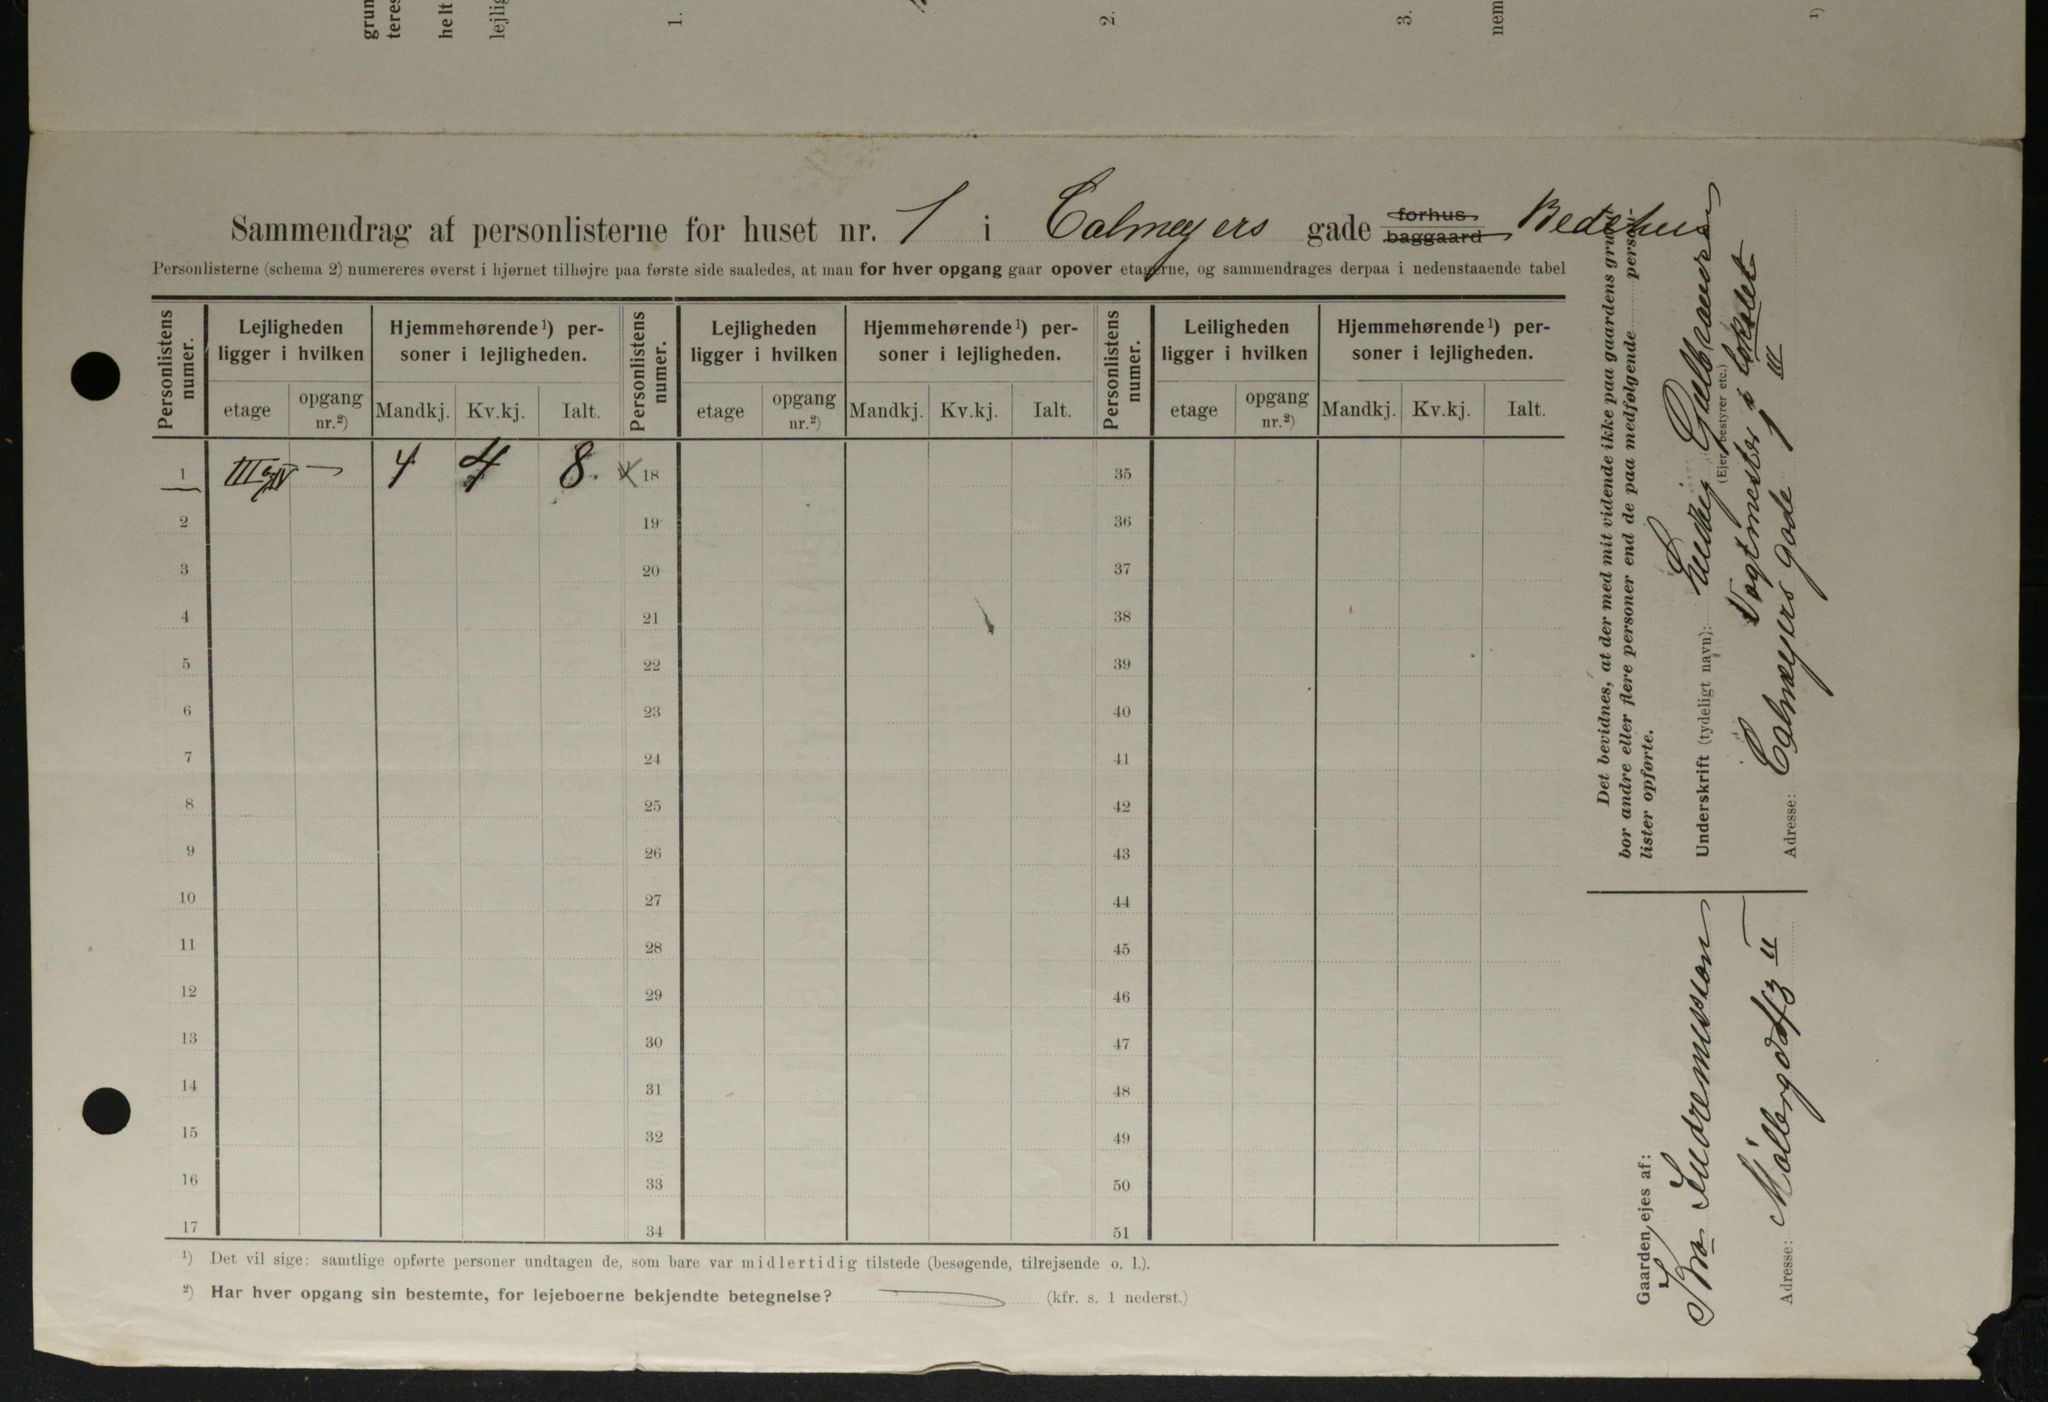 grun
teres
helt
lejlig
1.
2.
3.
nem
1)
Sammendrag af personlisterne for huset nr. 1 i Calmeyers gade forhus baggaard Bedehus
Personlisterne (schema 2) numereres øverst i hjørnet tilhøjre paa første side saaledes, at man for hver opgang gaar opover etagerne, og sammendrages derpaa i nedenstaaende tabel
Personlistens numer. Lejligheden ligger i hvilken Hjemmehørende¹) personer i lejligheden. Personlistens numer. Lejligheden ligger i hvilken Hjemmehørende¹) personer i lejligheden. Personlistens numer. Leiligheden ligger i hvilken Hjemmehørende¹) personer i lejligheden.
etage opgang nr.²) Mandkj. Kv.kj. Ialt. etage opgang nr.²) Mandkj. Kv.kj. Ialt. etage opgang nr.²) Mandkj. Kv.kj. Ialt.
1 III og IV — 4 4 8. 18 35
2 19 36
3 20 37
4 21 38
5 22 39
6 23 40
7 24 41
8 25 42
9 26 43
10 27 44
11 28 45
12 29 46
13 30 47
14 31 48
15 32 49
16 33 50
17 34 51
¹) Det vil sige: samtlige opførte personer undtagen de, som bare var midlertidig tilstede (besøgende, tilrejsende o. l.).
²) Har hver opgang sin bestemte, for lejeboerne bekjendte betegnelse? — (kfr. s. 1 nederst.)
Det bevidnes, at der med mit vidende ikke paa gaardens grund
bor andre eller flere personer end de paa medfølgende person-
lister opførte.
Underskrift (tydeligt navn): Ludvig
(Ejer, bestyrer etc.)
Vagtmester i lokalet
Adresse: Calmeyers gade 1 III
Gaarden ejes af:
Kra Indremission
Adresse: Møllergd 43 II